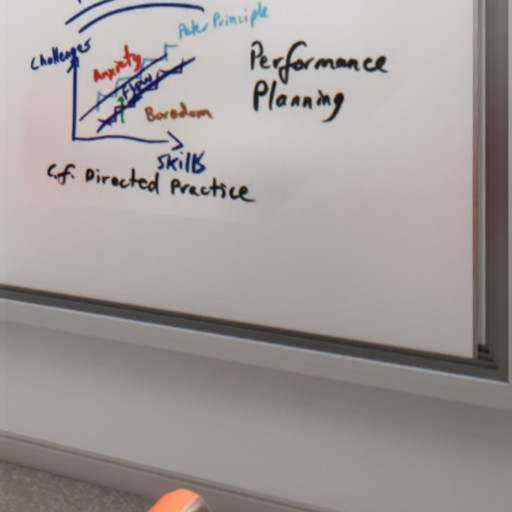 Peter Principle
Challenges
Anxiety
Flow
Boredom
Skills
c.f. Directed Practice
Performance
Planning